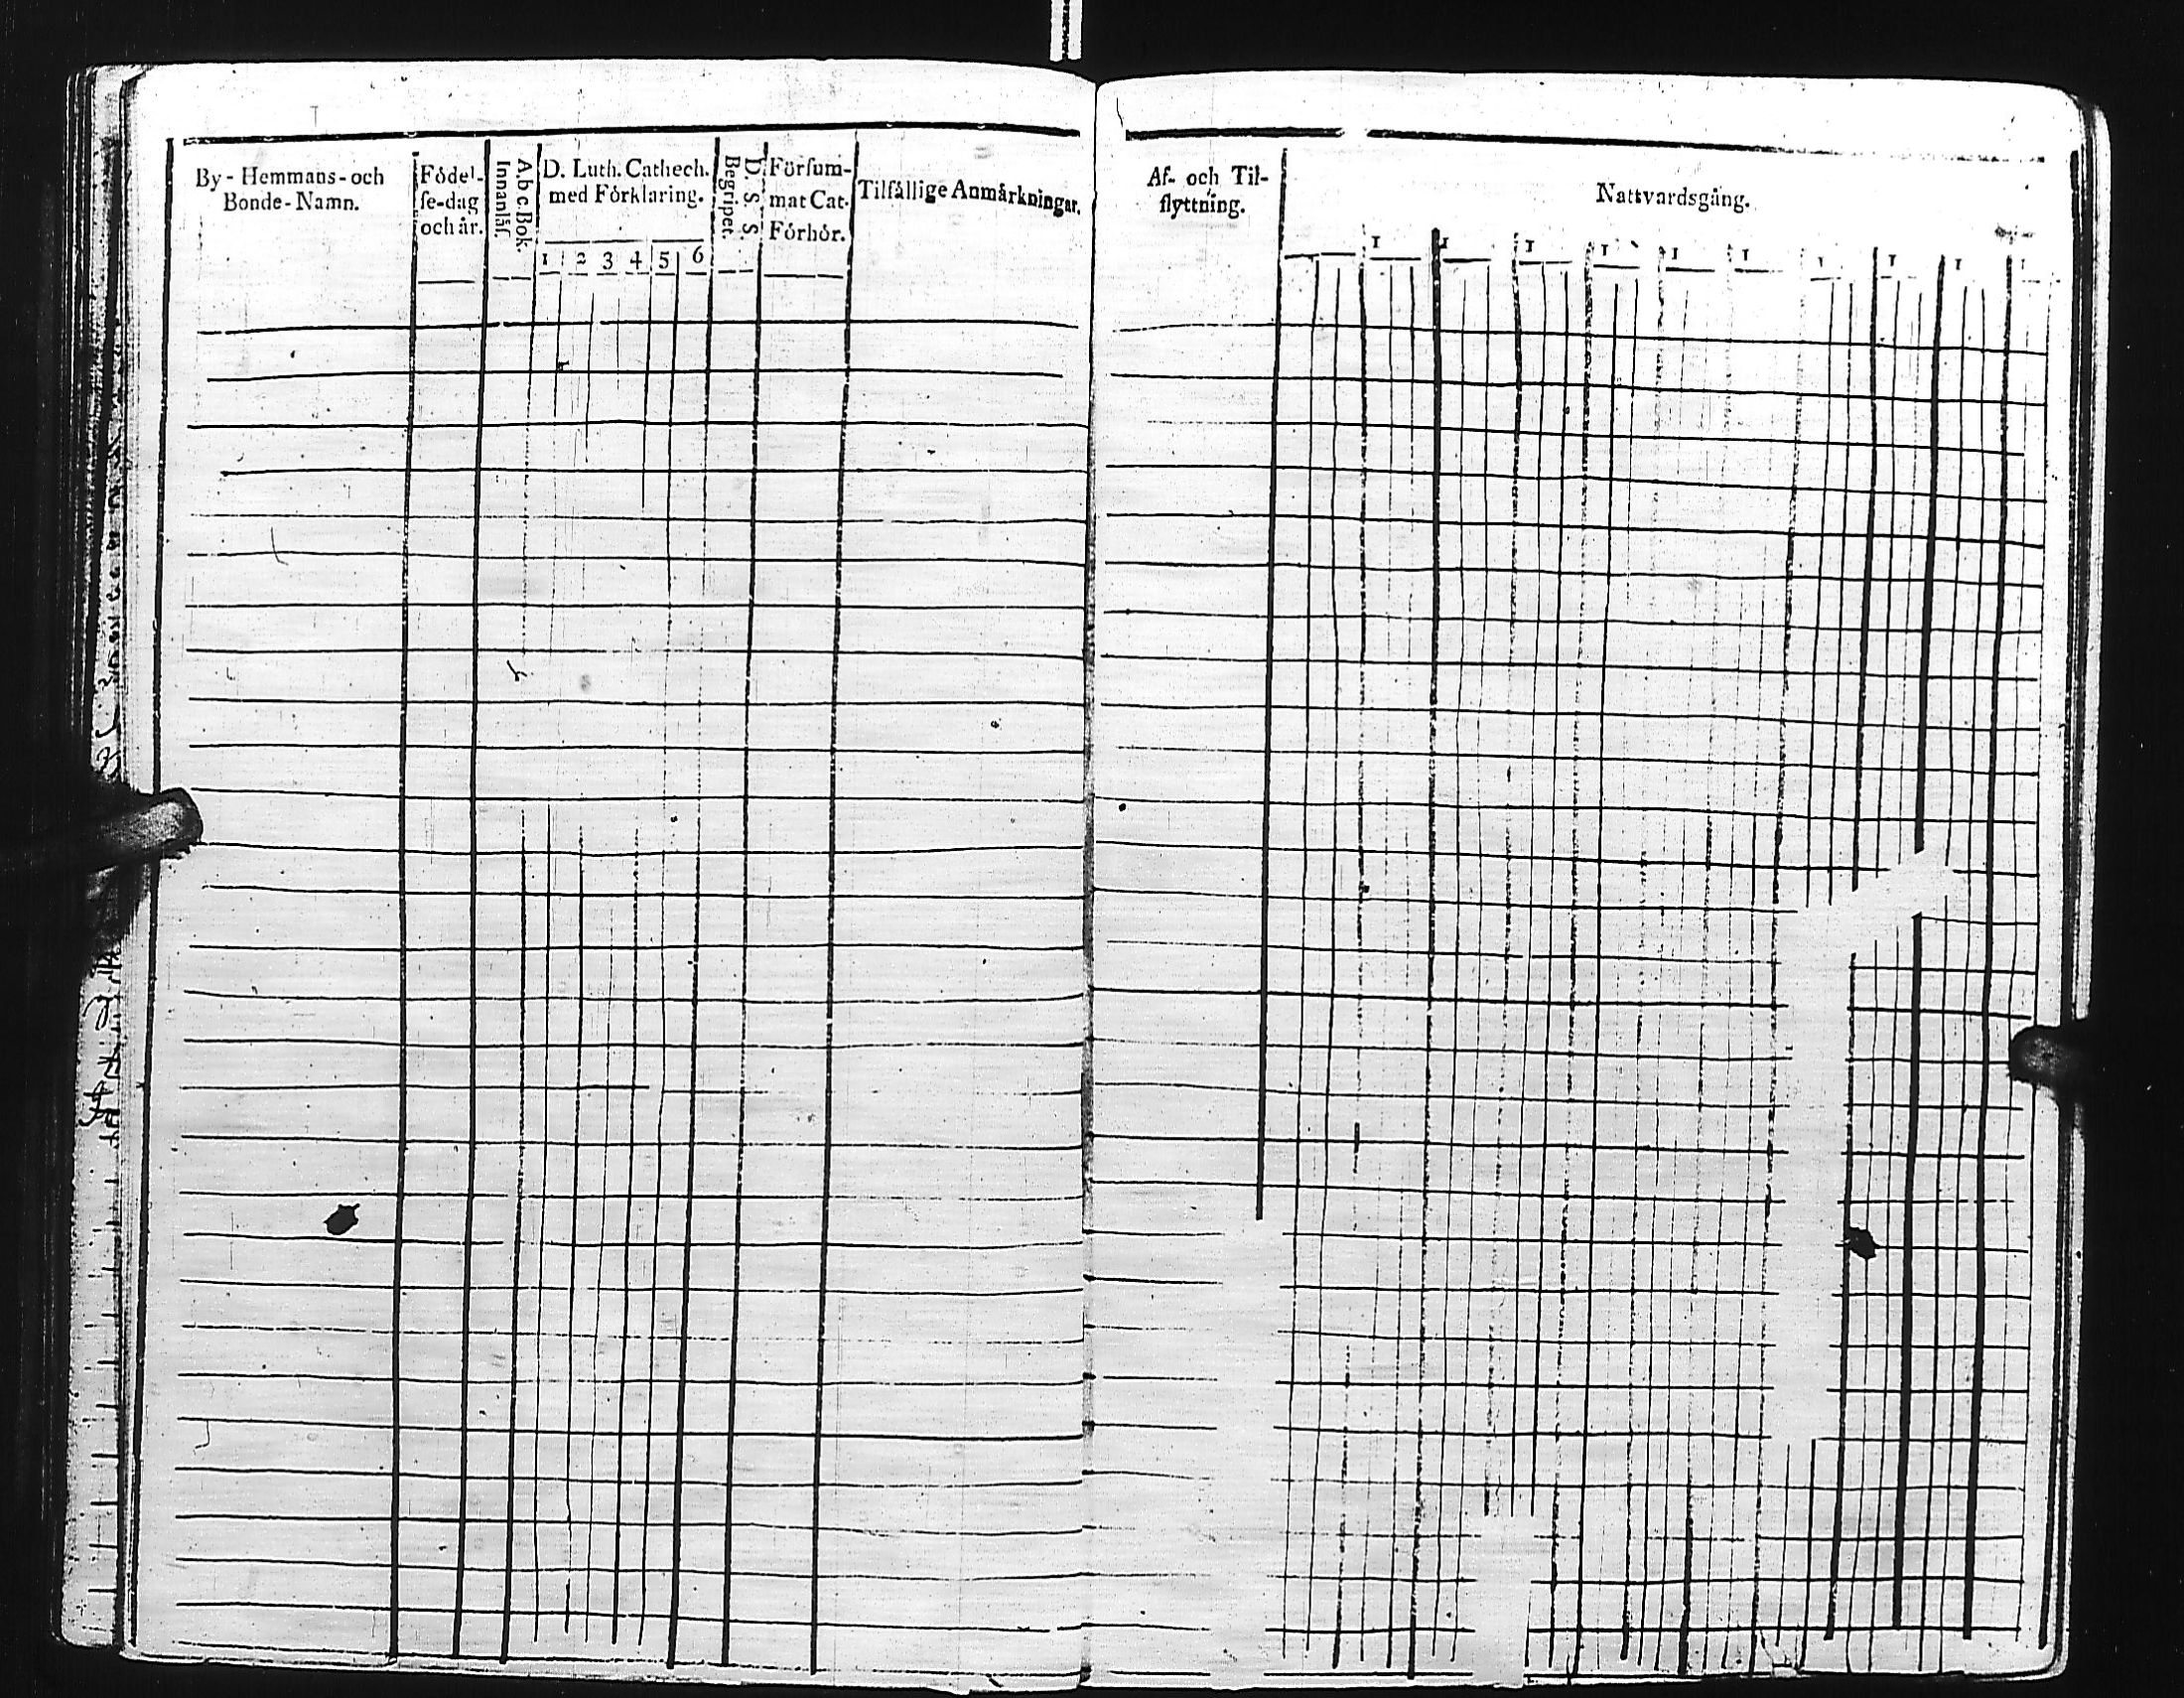 By - Hemmans - och
Bonde - Namn.
Födel-
se-dag
och år.
A b c Bok.
Innanläſ.
D. Luth. Cathech.
med Förklaring.
1 2 3 4 5 6
D. S. S.
Begriper.
Förſum-
mat Cat.
Förhör.
Tilfällige Anmärkningar.
Af- och Til-
flyttning.
Nattvardsgång.
1 1 1 1 1 1 1 1 1 1